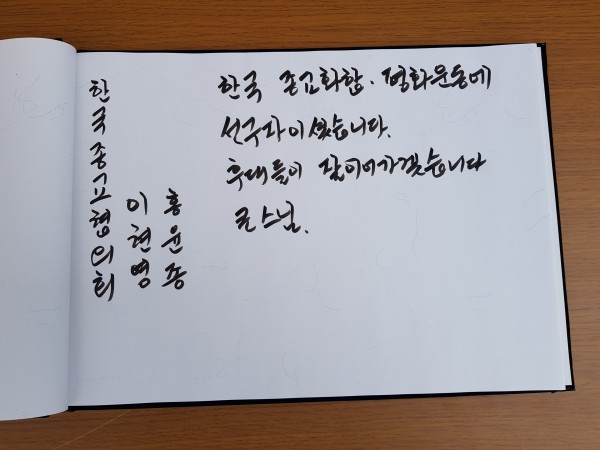 한국 종교화합·평화운동에
선구자이셨습니다.
후대들이 잘이어가겠습니다
큰스님.
한국종교협의회
이현영
홍윤종